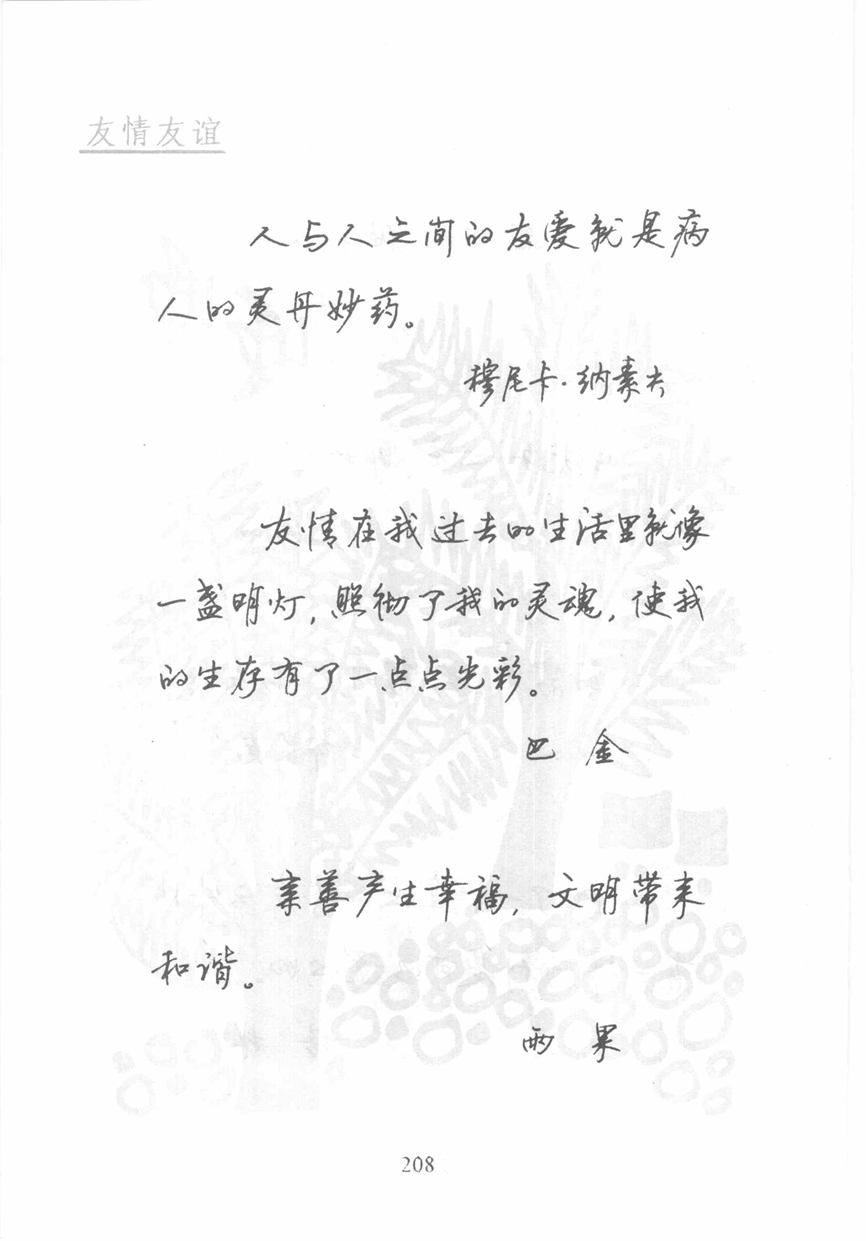 友情友谊
人与人之间的友爱就是病
人的灵丹妙药。
穆尼卡·纳素夫
友情在我过去的生活里就像
一盏明灯，照彻了我的灵魂，使我
的生存有了一点点光彩。
巴 金
亲善产生幸福，文明带来
和谐。
雨 果
208